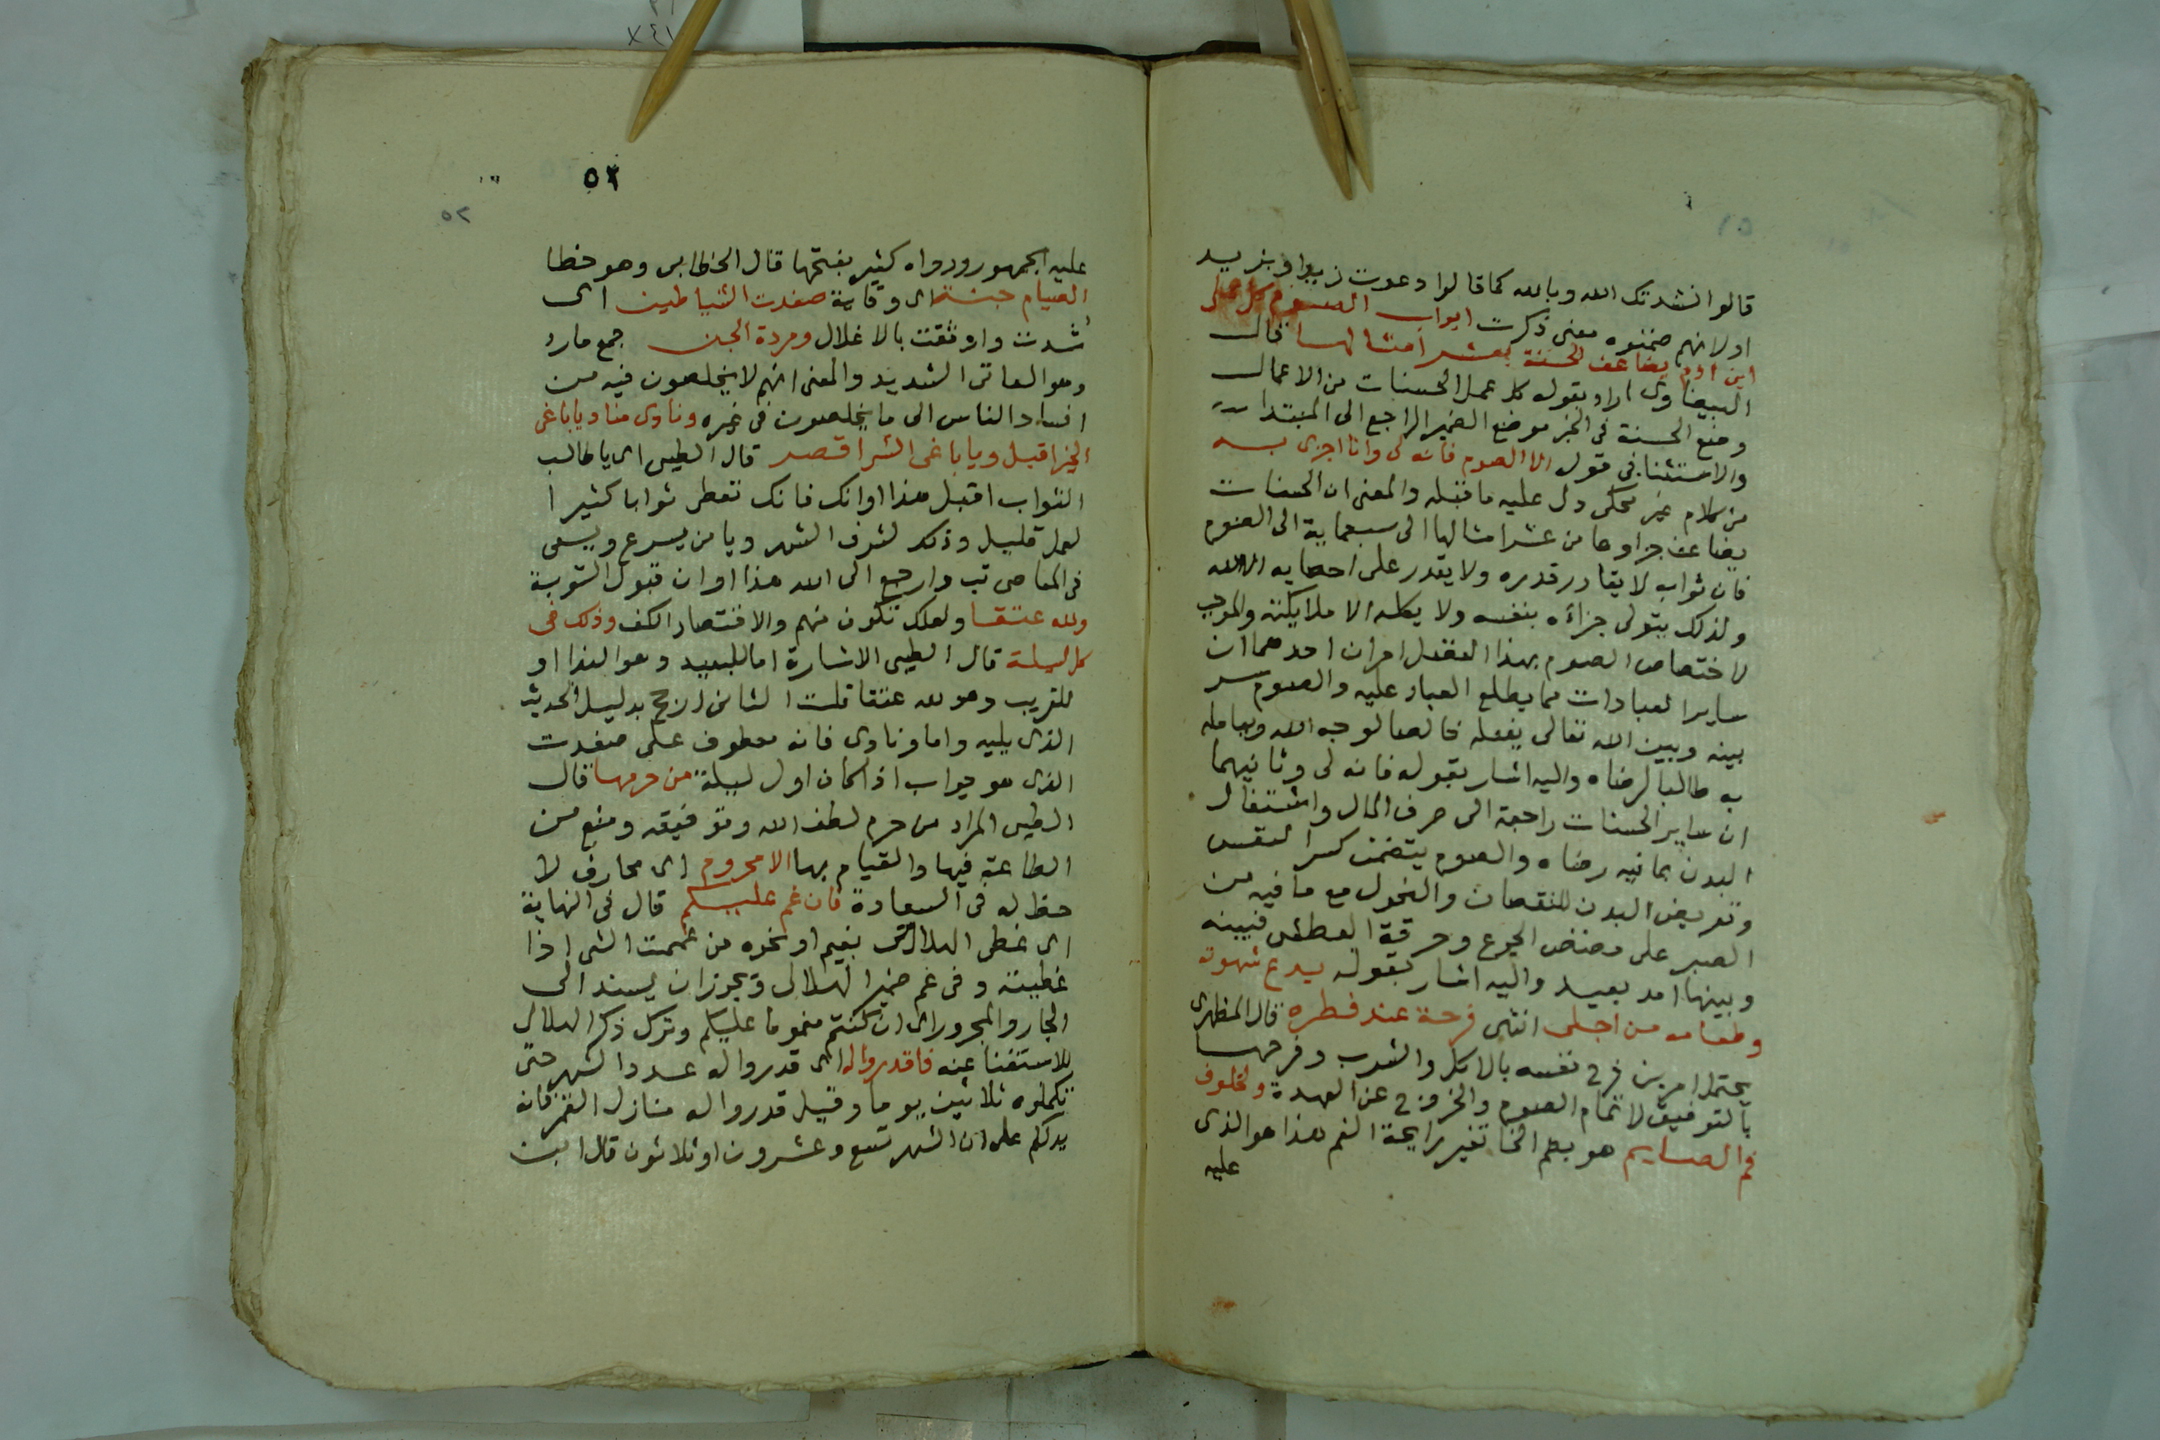 قالوا نشدتك الله وبالله كما قالوا دعوت زيدا وبزيد
او لانهم ضمنوه معنى ذكرت ابواب الصوم كل عمل
ابن ادم يضاعف الحسنة بعشر امثالها قال
البيضاوى اراد بقوله كل عمل الحسنات من الاعمال
وضع الحسنة فى الخبر موضع الضمير الراجع الى المبتدا
والاستثنا فى قوله الا الصوم فانه لى وانا اجزى به
من كلام غير محكى دل عليه ما قبله والمعنى ان الحسنات
يضاعف جزاوها من عشر امثالها الى سبعماية الى الصوم
فان ثوابه لا يقادر قدره ولا يقدر على احصايه الا الله
ولذلك يتولى جزاؤه بنفسه ولا يكله الا ملايكته والموجب
لاختصاص الصوم بهذا الفضل امران احدهما ان
ساير العبادات مما يطلع العباد عليه والصوم سر
بينه وبين الله تعالى يفعله خالصا لوجه الله ويعامله
به طالبا لرضاه واليه اشار بقوله فانه لى وثانيهما
ان ساير الحسنات راجعة الى صرف المال واشتغال
البدن بما فيه رضاه والصوم يتضمن كسر النفس
وتعريض البدن للنقصان والنحول مع ما فيه من
الصبر على مضض الجوع وحرقة العطش فبينه
وبينها امد بعيد واليه اشار بقوله يدع شهوته
وطعامه من اجلى انتهى فرحة عند فطره قال المظهرى
يحتمل امرين فرح نفسه بالاكل والشرب وفرحها
بالتوفيق لاتمام الصوم والخروج عن العهدة ولخلوف
فم الصايم هو بضم الخا تغير رايحة الفم هذا هو الذى
عليه
٥٢
٥٢
عليه الجمهور ورواه كثير بفتحها قال الخطابى وهو خطا
الصيام جنة اى وقاية صفدت الشياطين اى
شدت واوثقت بالاغلال ومردة الجن جمع مارد
وهو العاتى الشديد والمعنى انهم لا يخلصون فيه من
افساد الناس الى ما يخلصون فى غيره ونادى مناد ياباغى
الخير اقبل وياباغى الشر اقصر قال الطيبى اى يا طالب
الثواب اقبل هذا اوانك فانك تعطى ثوابا كثيرا
لعمل قليل وذلك لشرف الشهر ويا من يسرع ويسعى
فى المعاصى تب وارجع الى الله هذا اوان قبول التوبة
ولله عتقا ولعلك تكون منهم والاقتصار الكف وذلك فى
كل ليلة قال الطيبى الاشارة اما للبعيد وهو الندا او
للقريب وهو لله عتقا قلت الثانى ارجح بدليل الحديث
الذى يليه واما ونادى فانه معطوف على صفدت
الذى هو جواب اذا كان اول ليلة من حرمها قال
الطيبى المراد من حرم لطف الله وتوفيقه ومنع من
الطاعة فيها والقيام بها الا محروم اى محارف لا
حظ له فى السعادة فان غم عليكم قال فى النهاية
اى غطى الهلال بغيم او نحوه من غممت الشى اذا
غطيته وفى غم ضمير الهلال ويجوز ان يسند الى
الجار والمجرور اى ان كنتم مغموما عليكم وترك ذكر الهلال
للاستغنا عنه فاقدروا له اى قدروا له عدد الشهر حتى
تكملوه ثلاثين يوما وقيل قدروا له منازل القمر فانه
يدلكم على ان الشهر تسع وعشرون او ثلاثون قال ابن